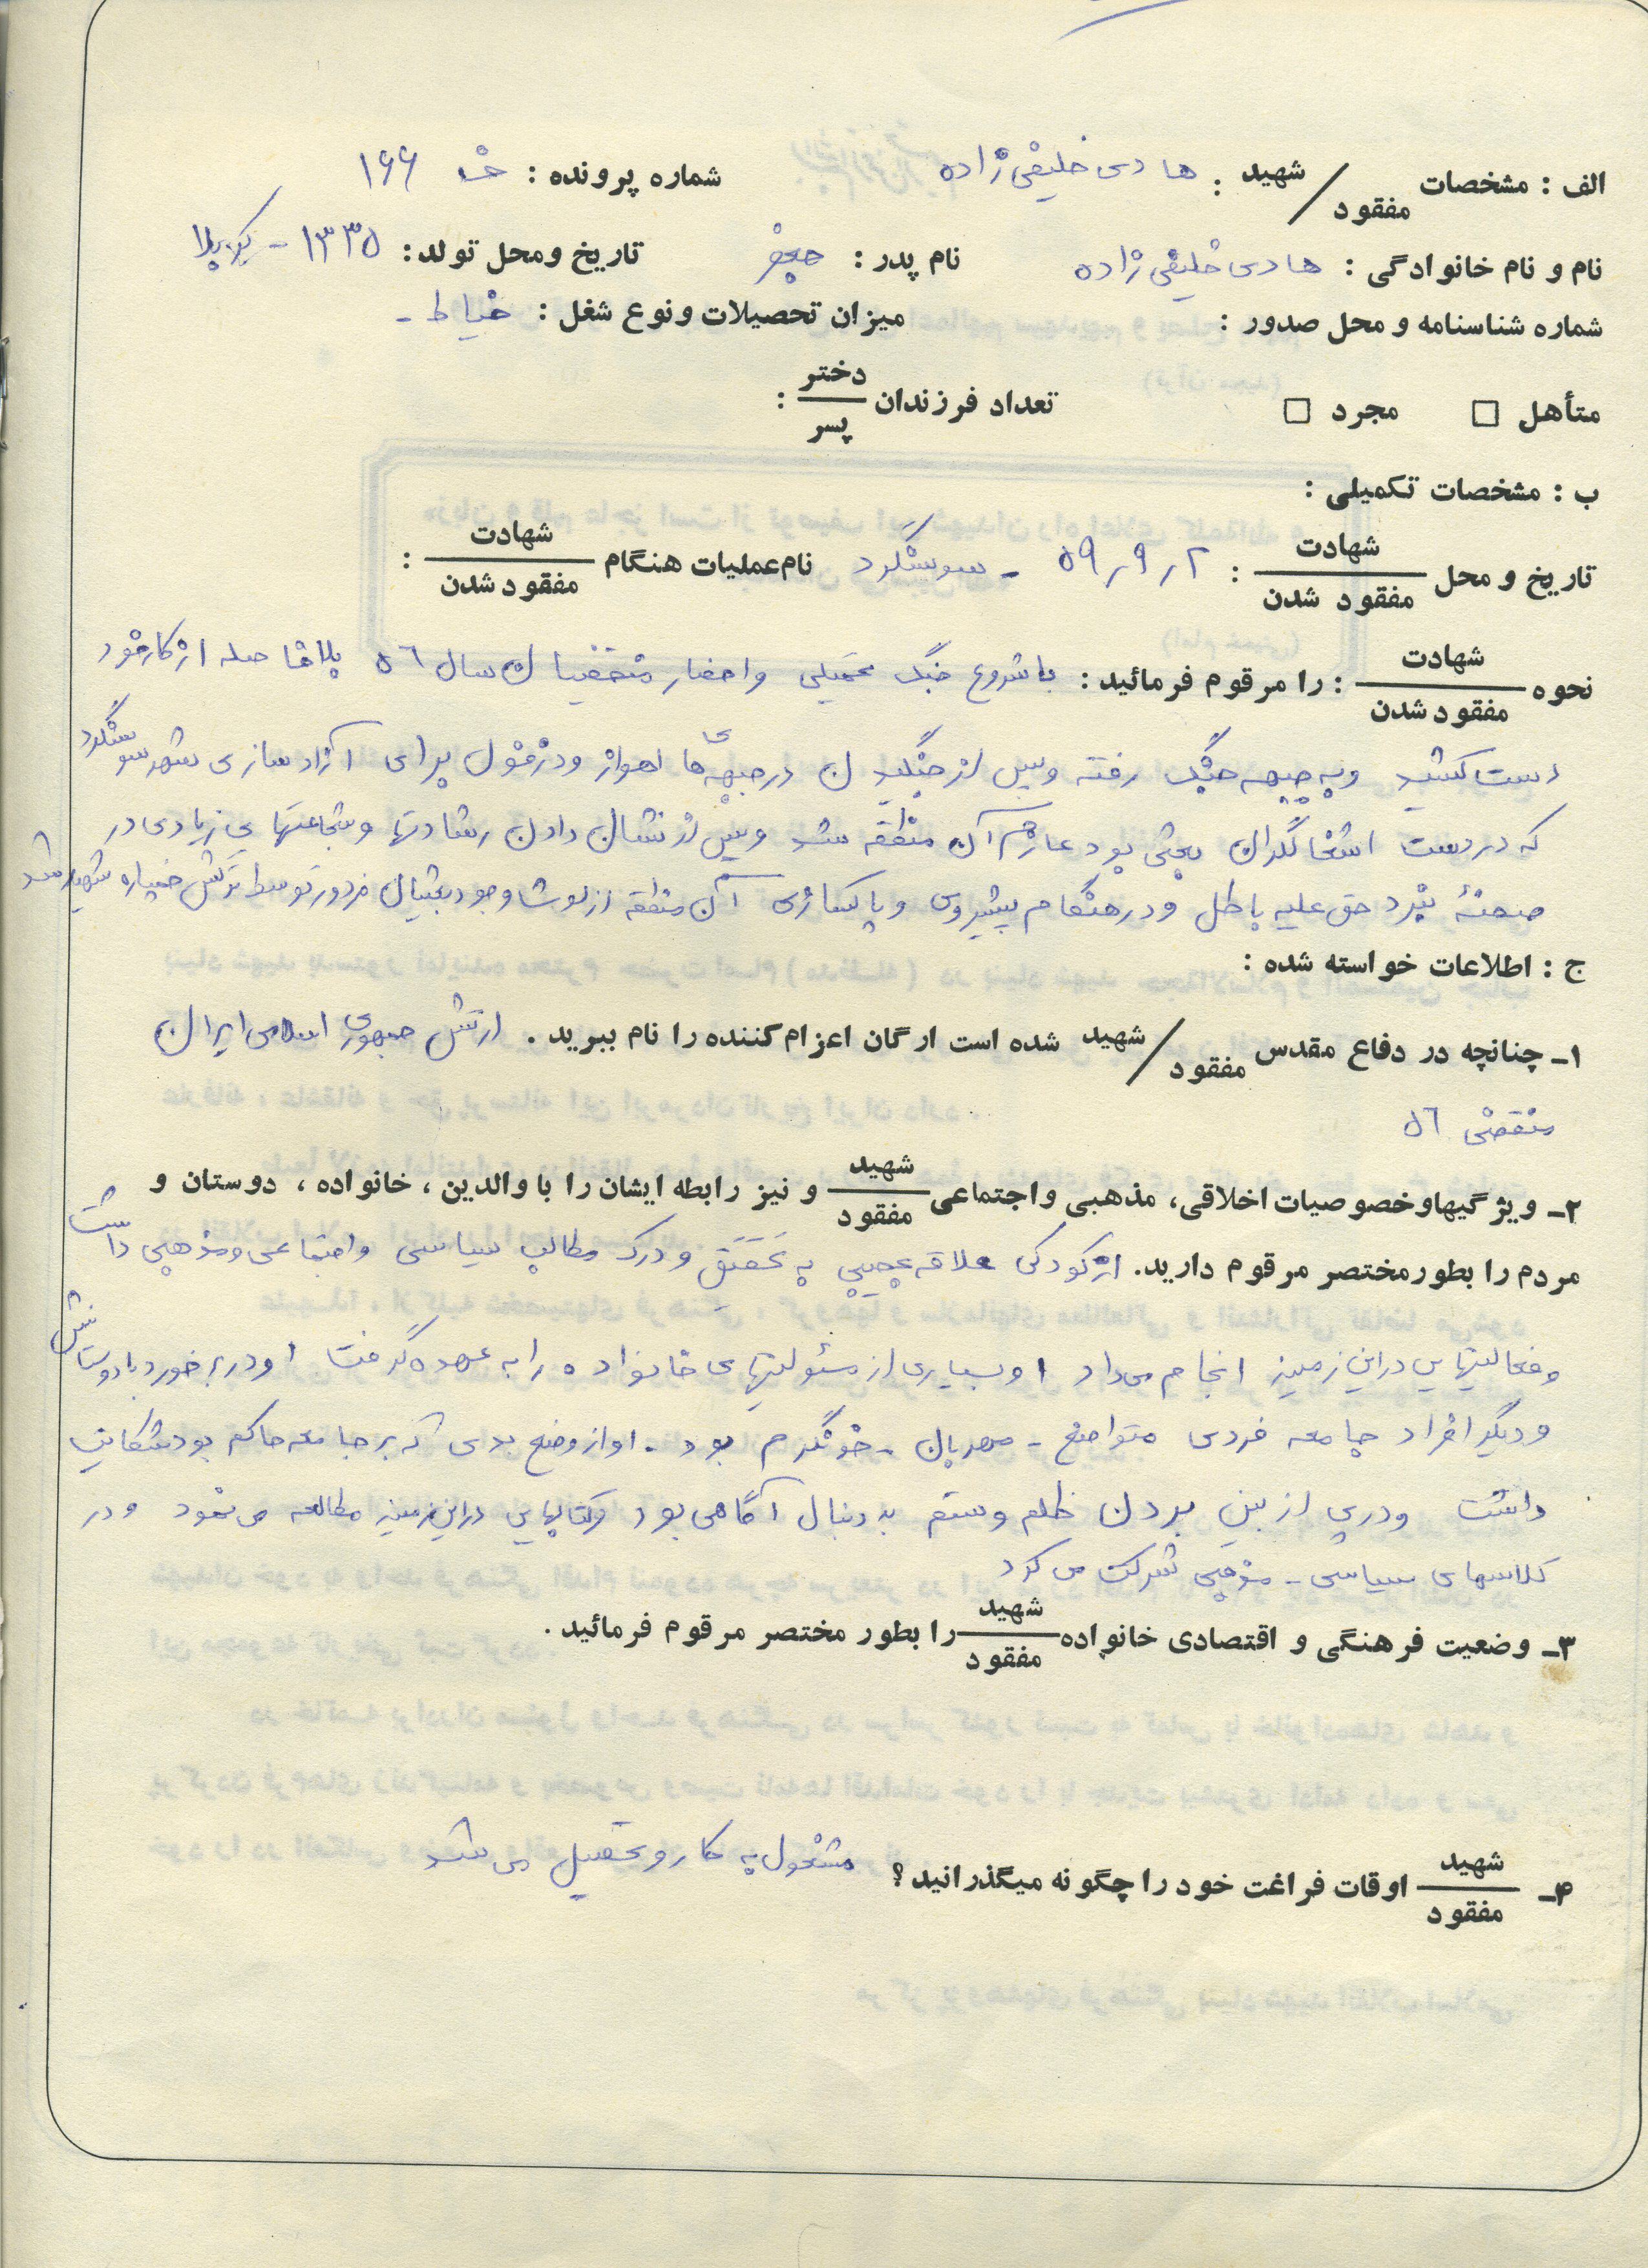 الف : مشخصات شهید / مفقود : هادی خلیفی زاده شماره پرونده : خ ۱۶۶
نام و نام خانوادگی : هادی خلیفی زاده نام پدر : جعفر تاریخ و محل تولد : ۱۳۳۵ - کربلا
شماره شناسنامه و محل صدور : میزان تحصیلات و نوع شغل : خیاط -
متأهل □ مجرد □ تعداد فرزندان دختر / پسر :
ب : مشخصات تکمیلی :
تاریخ و محل شهادت / مفقود شدن : ۵۹٫۹٫۲ - سوسنگرد نام عملیات هنگام شهادت / مفقود شدن :
نحوه شهادت / مفقود شدن : را مرقوم فرمائید : با شروع جنگ تحمیلی و احضار منقضیان سال ۵۶ بلافاصله از کار خود
دست کشید و به جبهه جنگ رفته و پس از جنگیدن در جبهه های اهواز و دزفول برای آزادسازی شهر سوسنگرد
که در دست اشغالگران بعثی بود عازم آن منطقه شد و پس از نشان دادن رشادتها و شجاعتهایی زیادی در
صحنهٔ نبرد حق علیه باطل و در هنگام پیشروی و پاکسازی آن منطقه از لوث وجود بعثیان مزدور توسط ترکش خمپاره شهید شد
ج : اطلاعات خواسته شده :
۱ـ چنانچه در دفاع مقدس شهید / مفقود شده است ارگان اعزام کننده را نام ببرید . ارتش جمهوری اسلامی ایران
منقضی ۵۶
۲ـ ویژگیهاوخصوصیات اخلاقی، مذهبی واجتماعی شهید / مفقود و نیز رابطه ایشان را با والدین ، خانواده ، دوستان و
مردم را بطورمختصر مرقوم دارید. از کودکی علاقه عجیبی به تحقیق و درک مطالب سیاسی و اجتماعی و مذهبی داشت
و فعالیتهایی در این زمینه انجام می داد او بسیاری از مسئولیتهای خانواده را به عهده گرفت او در برخورد با دوستانش
و دیگر افراد جامعه فردی متواضع - مهربان - خونگرم بود . او از وضع بدی که بر جامعه حاکم بود شکایت
داشت و در پی از بین بردن ظلم و ستم به دنبال آگاهی بود و کتابهایی در این زمینه مطالعه می نمود و در
کلاسهای سیاسی - مذهبی شرکت می کرد
۳ـ وضعیت فرهنگی و اقتصادی خانواده شهید / مفقود را بطور مختصر مرقوم فرمائید .
۴ـ شهید / مفقود اوقات فراغت خود را چگونه میگذرانید؟ مشغول به کار و تحصیل می شد